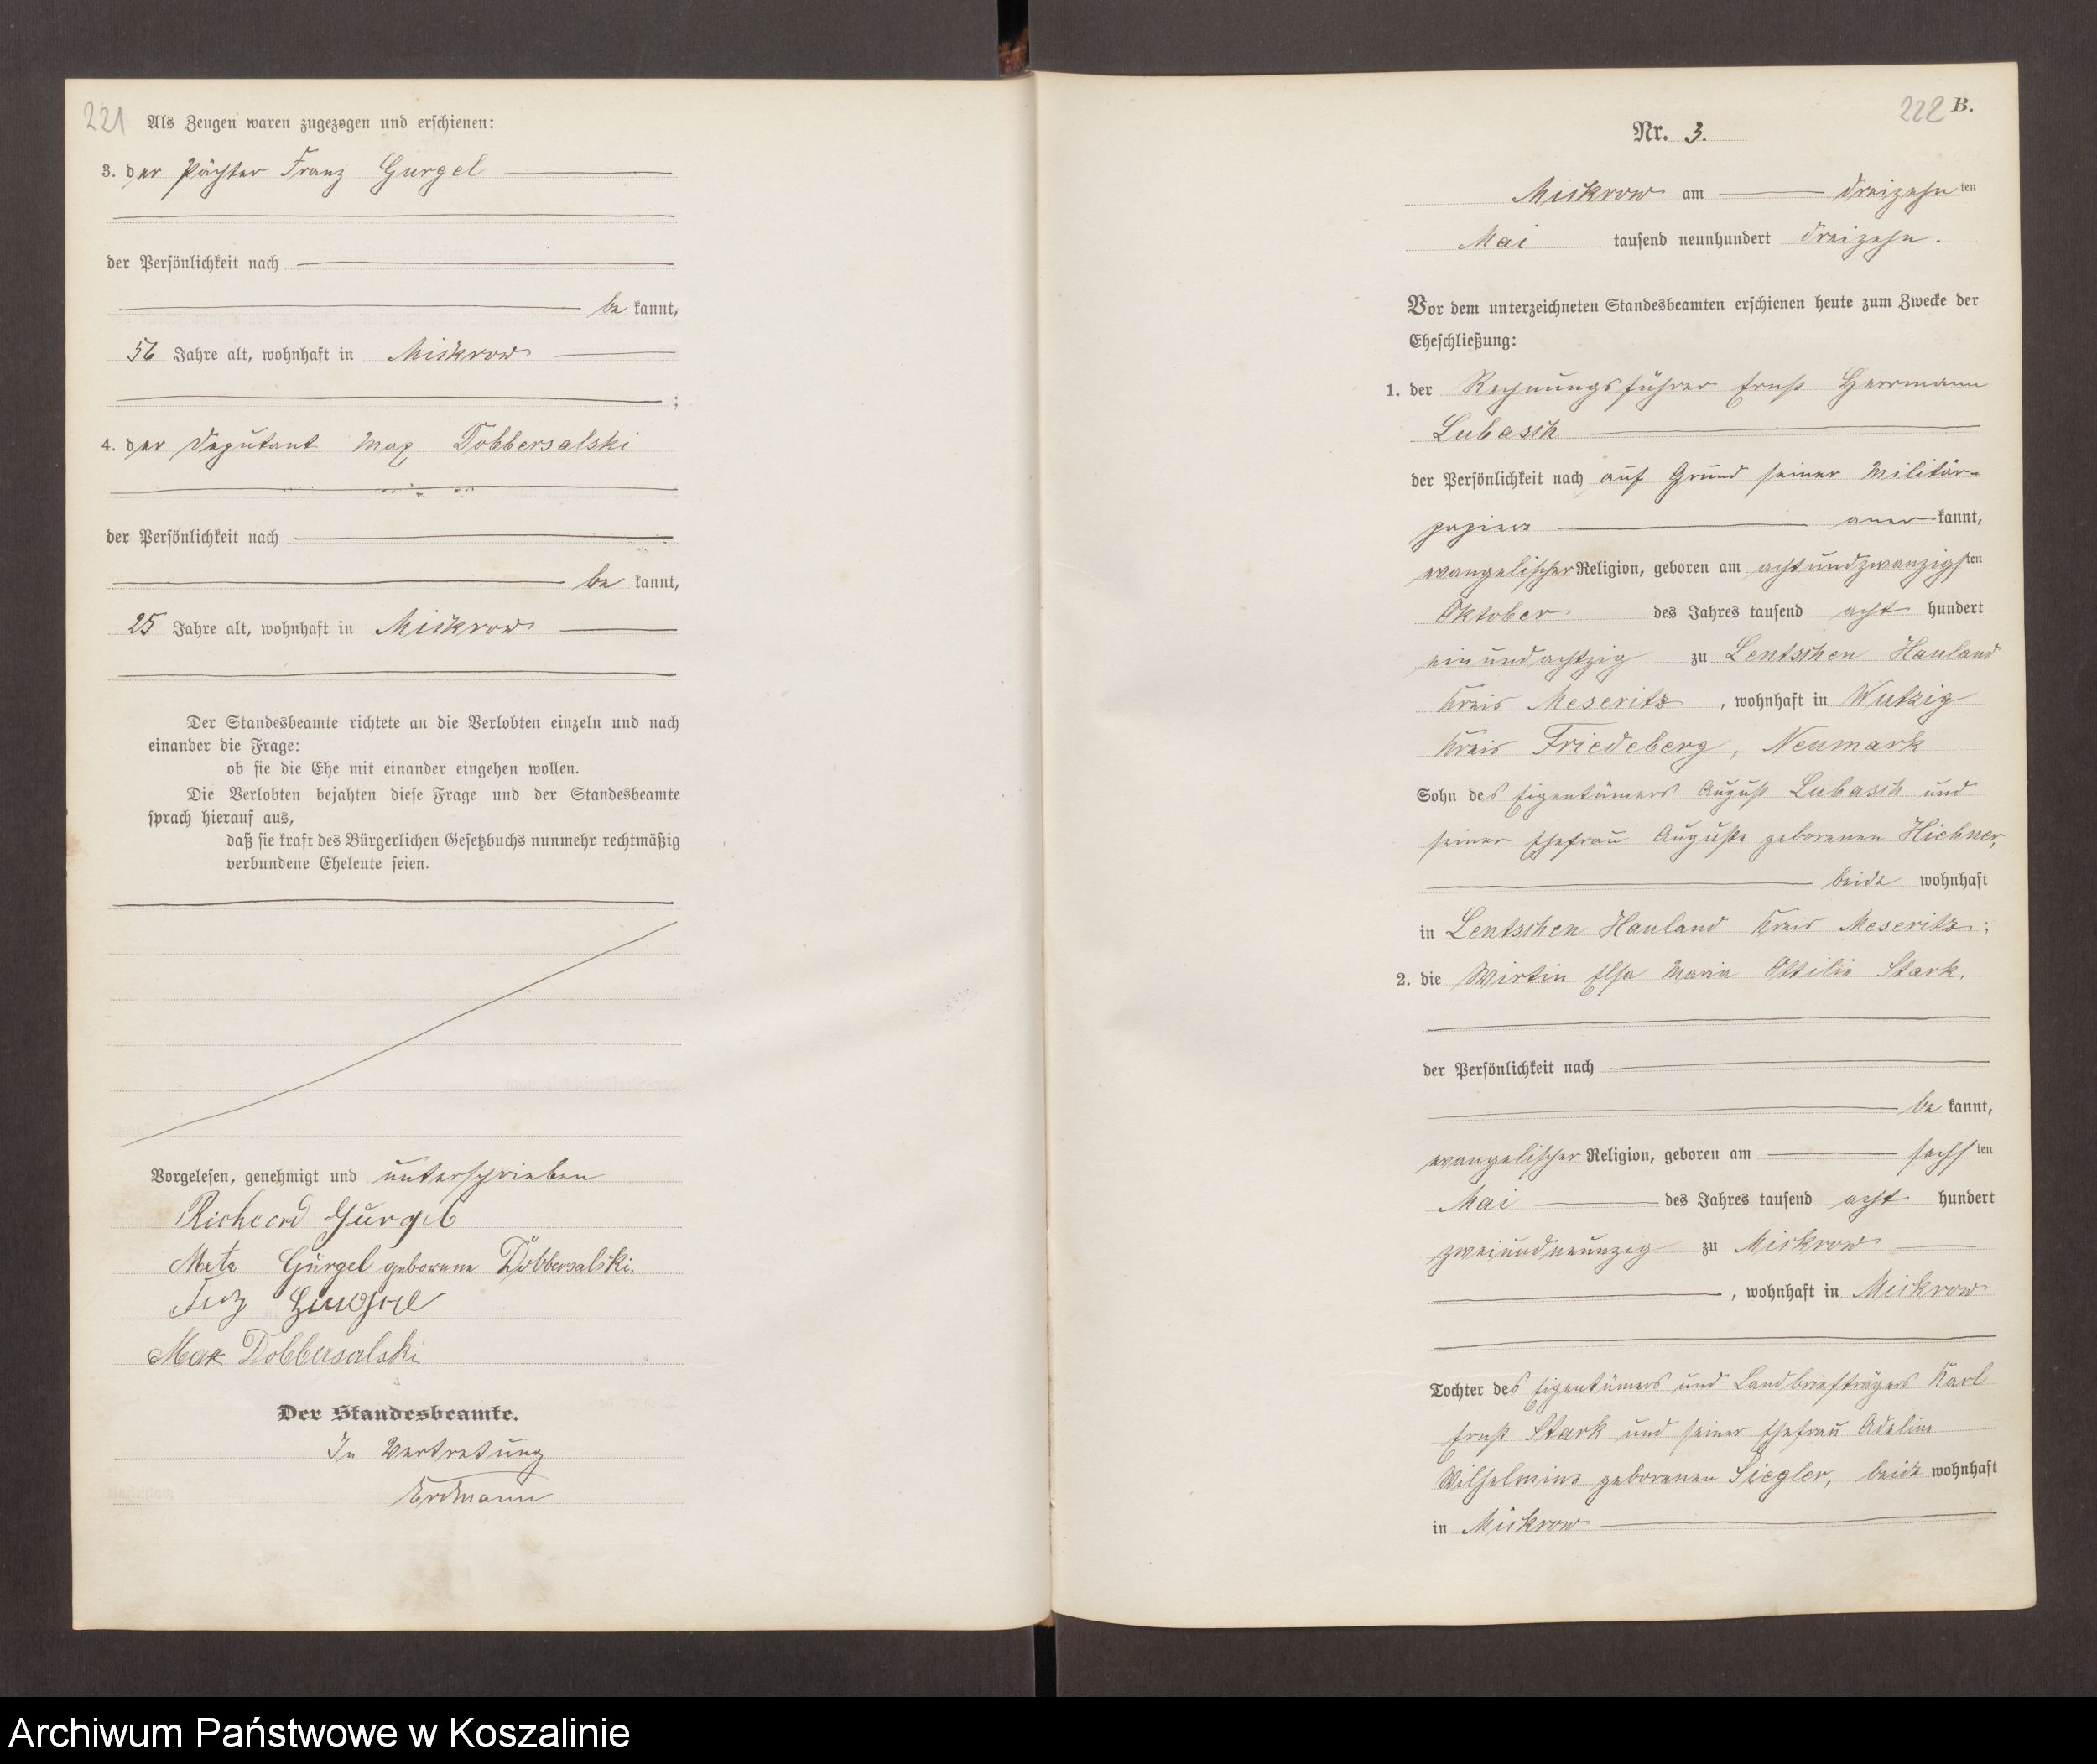 221
Als Zeugen waren zugezogen und erschienen:
3. der Pächter Franz Gurgel
der Persönlichkeit nach
be kannt,
56 Jahre alt, wohnhaft in Mickrow
;
4. der Deputant Max Dobbersalski
der Persönlichkeit nach
be kannt,
25 Jahre alt, wohnhaft in Mickrow
Der Standesbeamte richtete an die Verlobten einzeln und nach
einander die Frage:
ob sie die Ehe mit einander eingehen wollen.
Die Verlobten bejahten diese Frage und der Standesbeamte
sprach hierauf aus,
daß sie kraft des Bürgerlichen Gesetzbuchs nunmehr rechtmäßig
verbundene Eheleute seien.
Vorgelesen, genehmigt und unterschrieben
Richard Gurgel
Meta Gurgel geborene Dobbersalski.
Gurgel
Max Dobbersalski
Der Standesbeamte.
In Vertretung
Erdmann
222 B.
Nr. 3.
Mickrow am dreizehn ten
Mai tausend neunhundert dreizehn.
Vor dem unterzeichneten Standesbeamten erschienen heute zum Zwecke der
Eheschließung:
1. der Rechnungsführer Ernst Herrmann
Lubasch
der Persönlichkeit nach auf Grund seiner Militär-
papiere aner kannt,
evangelischer Religion, geboren am achtundzwanzigsten
Oktober des Jahres tausend acht hundert
einundachtzig zu Lentschen Hauland
Kreis Meseritz, wohnhaft in Wutzig
Kreis Friedeberg, Neumark
Sohn des Eigentümers August Lubasch und
seiner Ehefrau Auguste geborenen Hiebner,
beide wohnhaft
in Lentschen Hauland Kreis Meseritz;
2. die Wirtin Elsa Maria Ottilie Stark.
der Persönlichkeit nach
be kannt,
evangelischer Religion, geboren am sechsten
Mai des Jahres tausend acht hundert
zweiundneunzig zu Mickrow
, wohnhaft in Mickrow
Tochter des Eigentümers und Landbriefträgers Karl
Ernst Stark und seiner Ehefrau Adeline
Wilhelmine geborenen Siegler, beide wohnhaft
in Mickrow
Archiwum Państwowe w Koszalinie